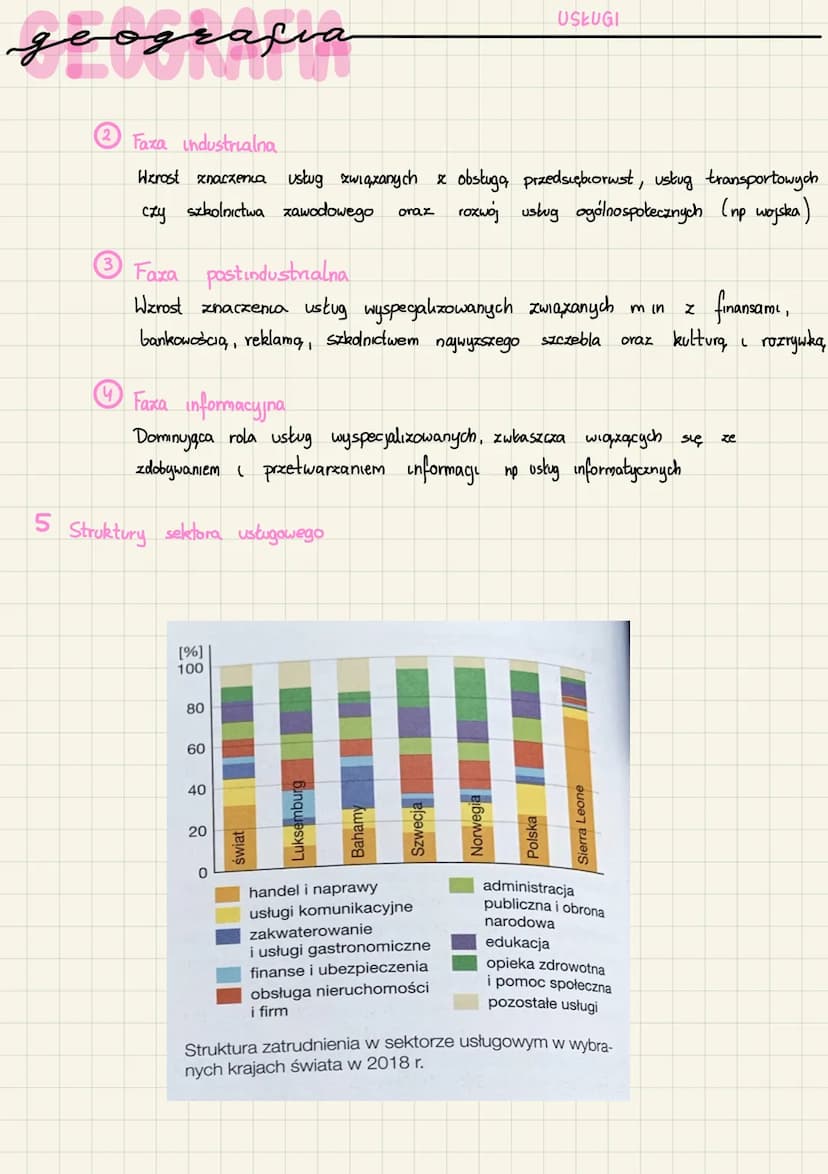 GEOGRAFIA
geografia
USŁUGI
2 Faza industrialna
Wzrost znaczenia usług związanych z obsługą przedsiębiorstw, usług transportowych
czy szkolnictwa zawodowego oraz rozwój usług ogólnospołecznych (np wojska)
3 Faza postindustrialna
Wzrost znaczenia usług wyspecjalizowanych związanych m in z finansami,
bankowością, reklamą, szkolnictwem najwyższego szczebla oraz kulturą i rozrywką
4 Faza informacyjna
Dominująca rola usług wyspecjalizowanych, zwłaszcza wiążących się ze
zdobywaniem i przetwarzaniem informacji np usług informatycznych
5 Struktury sektora usługowego
[%]
100
80
60
40
20
0
świat
Luksemburg
Bahamy
Szwecja
Norwegia
Polska
Sierra Leone
handel i naprawy
usługi komunikacyjne
zakwaterowanie
i usługi gastronomiczne
finanse i ubezpieczenia
obsługa nieruchomości
i firm
administracja
publiczna i obrona
narodowa
edukacja
opieka zdrowotna
i pomoc społeczna
pozostałe usługi
Struktura zatrudnienia w sektorze usługowym w wybra-
nych krajach świata w 2018 r.